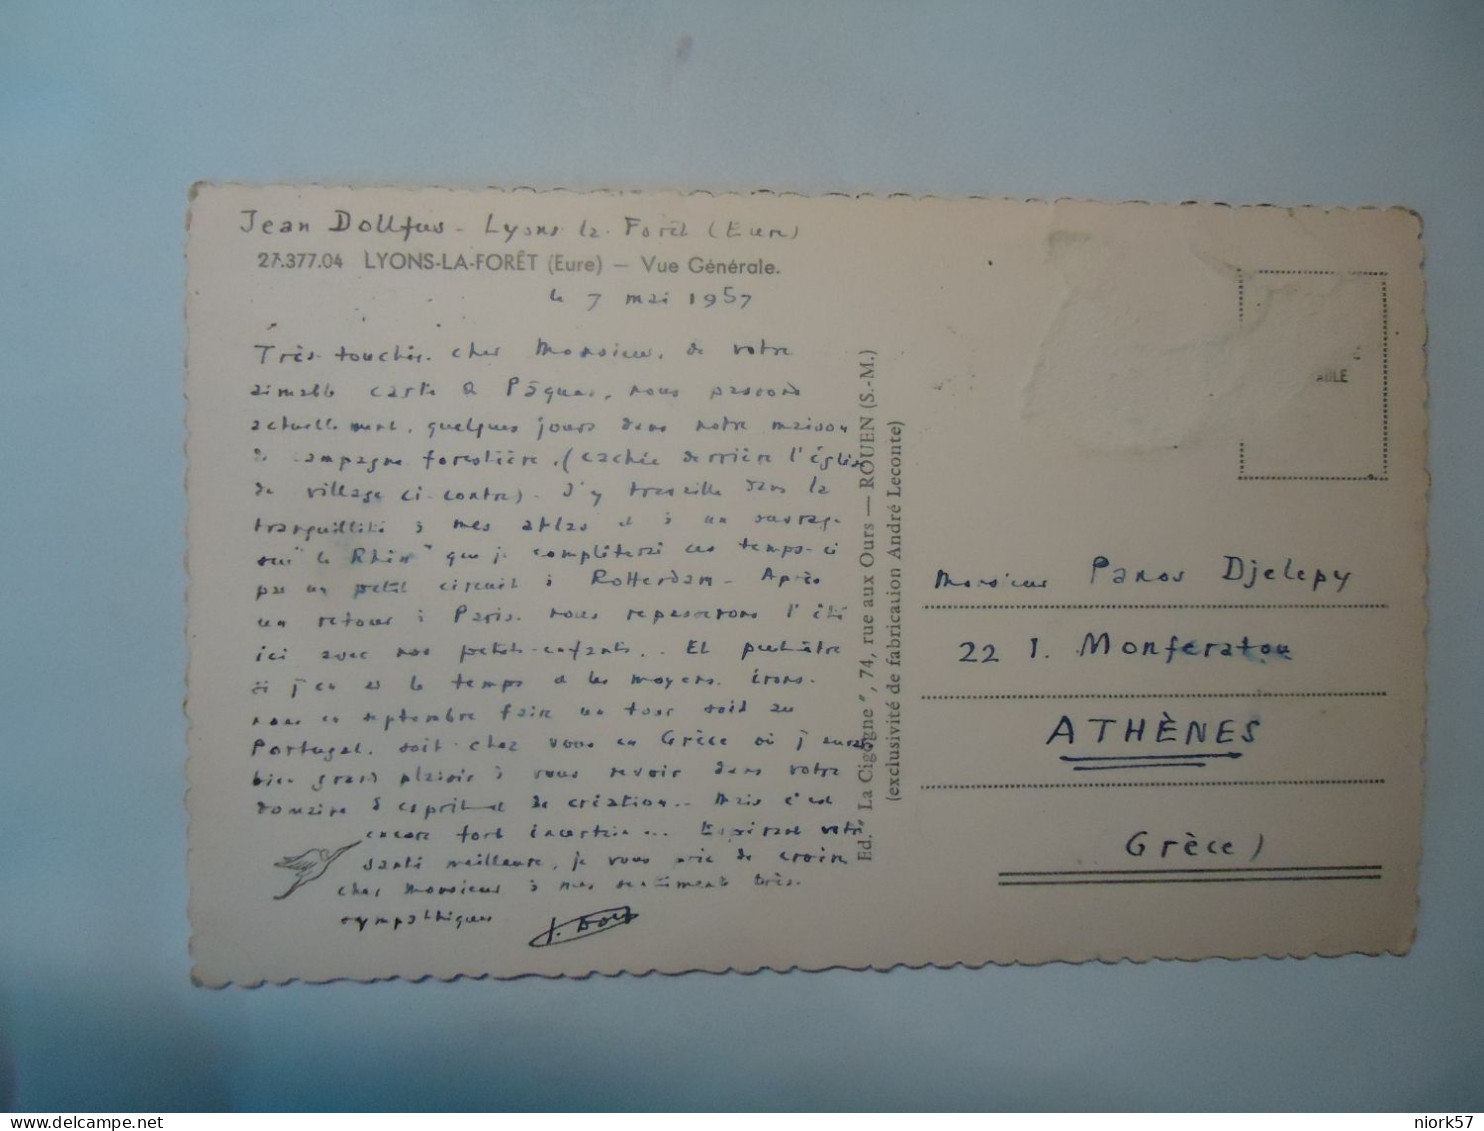 Jean Dollfus - Lyons-la-Forêt (Eure)
27.377.04 LYONS-LA-FORÊT (Eure) — Vue Générale.
le 7 mai 1957
Très touchés, cher Monsieur, de votre
aimable carte de Pâques, nous passons
actuellement, quelques jours dans notre maison
de campagne forestière. (cachée derrière l'église
du village ci-contre) - J'y travaille dans la
tranquillité à mes atlas et à un ouvrage
sur "le Rhin" que je complèterai ces temps-ci
par un petit circuit à Rotterdam - Après
un retour à Paris, nous repasserons l'été
ici avec nos petits-enfants.. Et peut-être
si j'en ai le temps et les moyens, irons-
nous en septembre faire un tour soit au
Portugal, soit chez vous en Grèce où j'aurais
bien grand plaisir à vous revoir dans votre
domaine d'esprit et de création.. Mais c'est
encore fort incertain... Espérant votre
santé meilleure, je vous prie de croire
cher Monsieur à mes sentiments très
sympathiques
Ed. "La Cigogne", 74, rue aux Ours — ROUEN (S.-M.)
(exclusivité de fabrication André Leconte)
ABLE
Monsieur Panos Djelepy
22 1. Monferatou
ATHÈNES
Grèce)
niork57